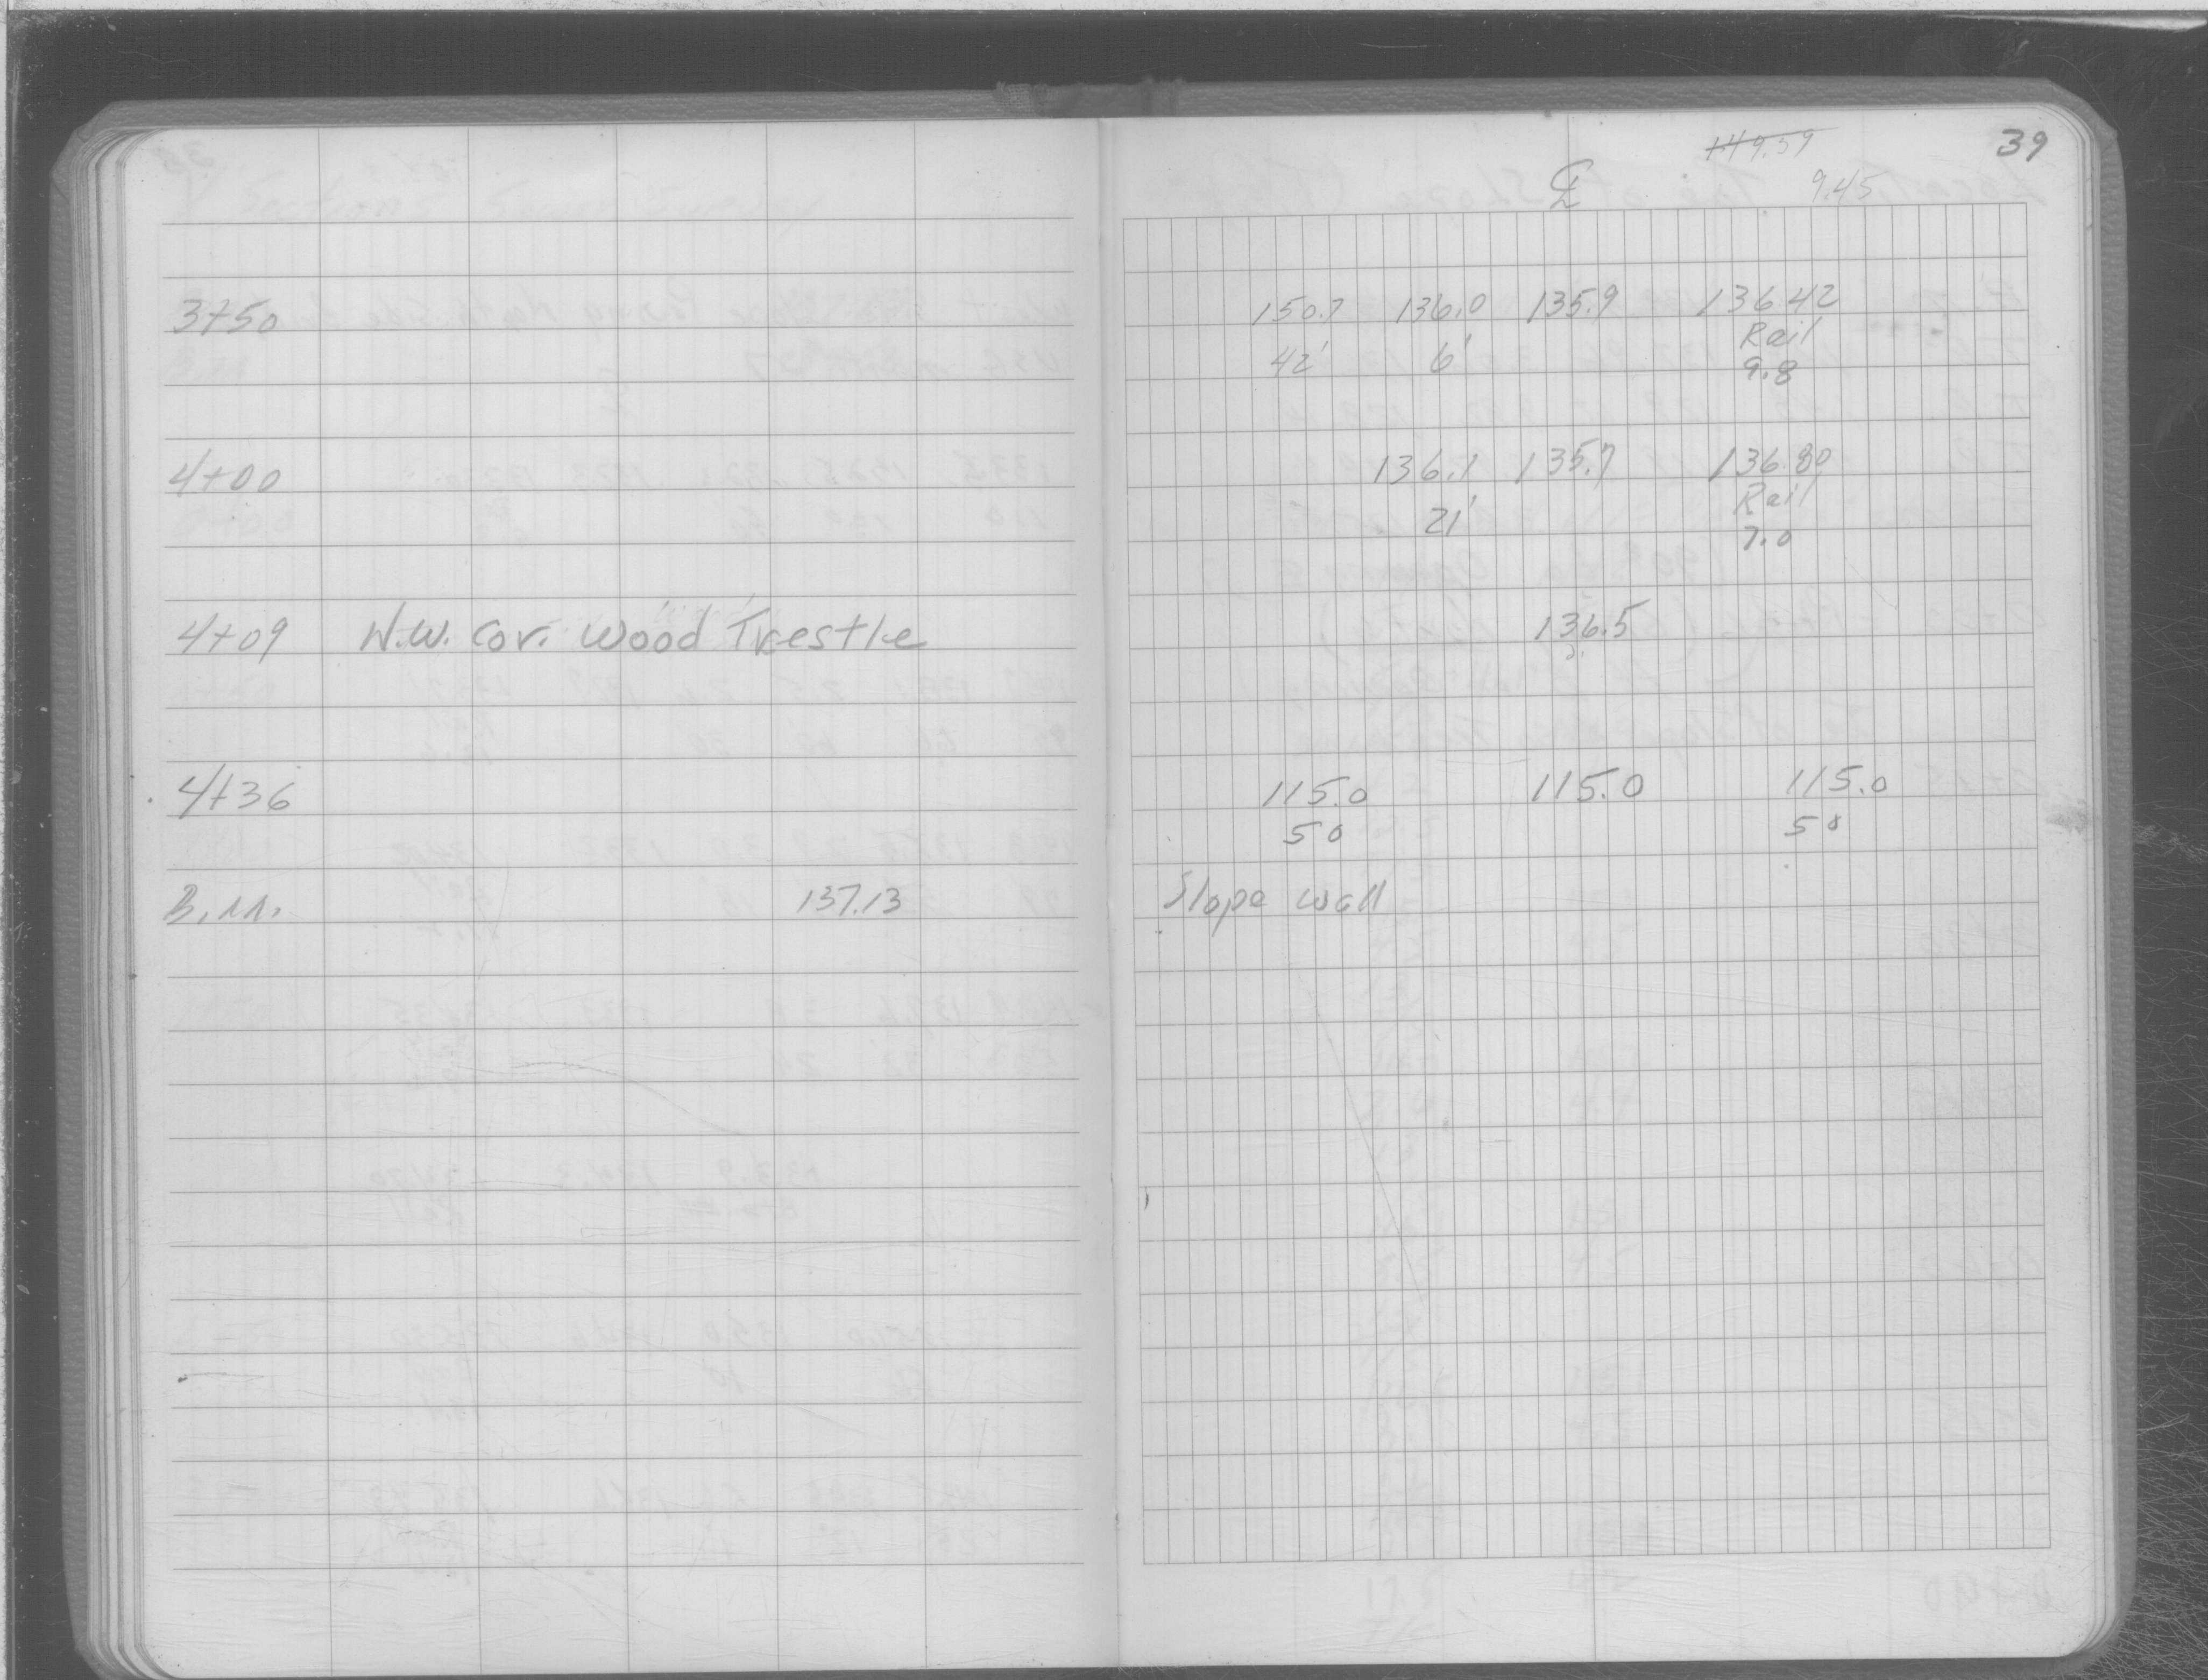 149.59 39
℄ 9.45
3+50 150.7 136.0 135.9 136.42
Rail
42' 6' 9.8
4+00 136.1 135.7 136.80
Rail
21' 7.0
4+09 N.W. Cor. Wood Trestle 136.5
4+36 115.0 115.0 115.0
50 50
B.M. 137.13 Slope wall